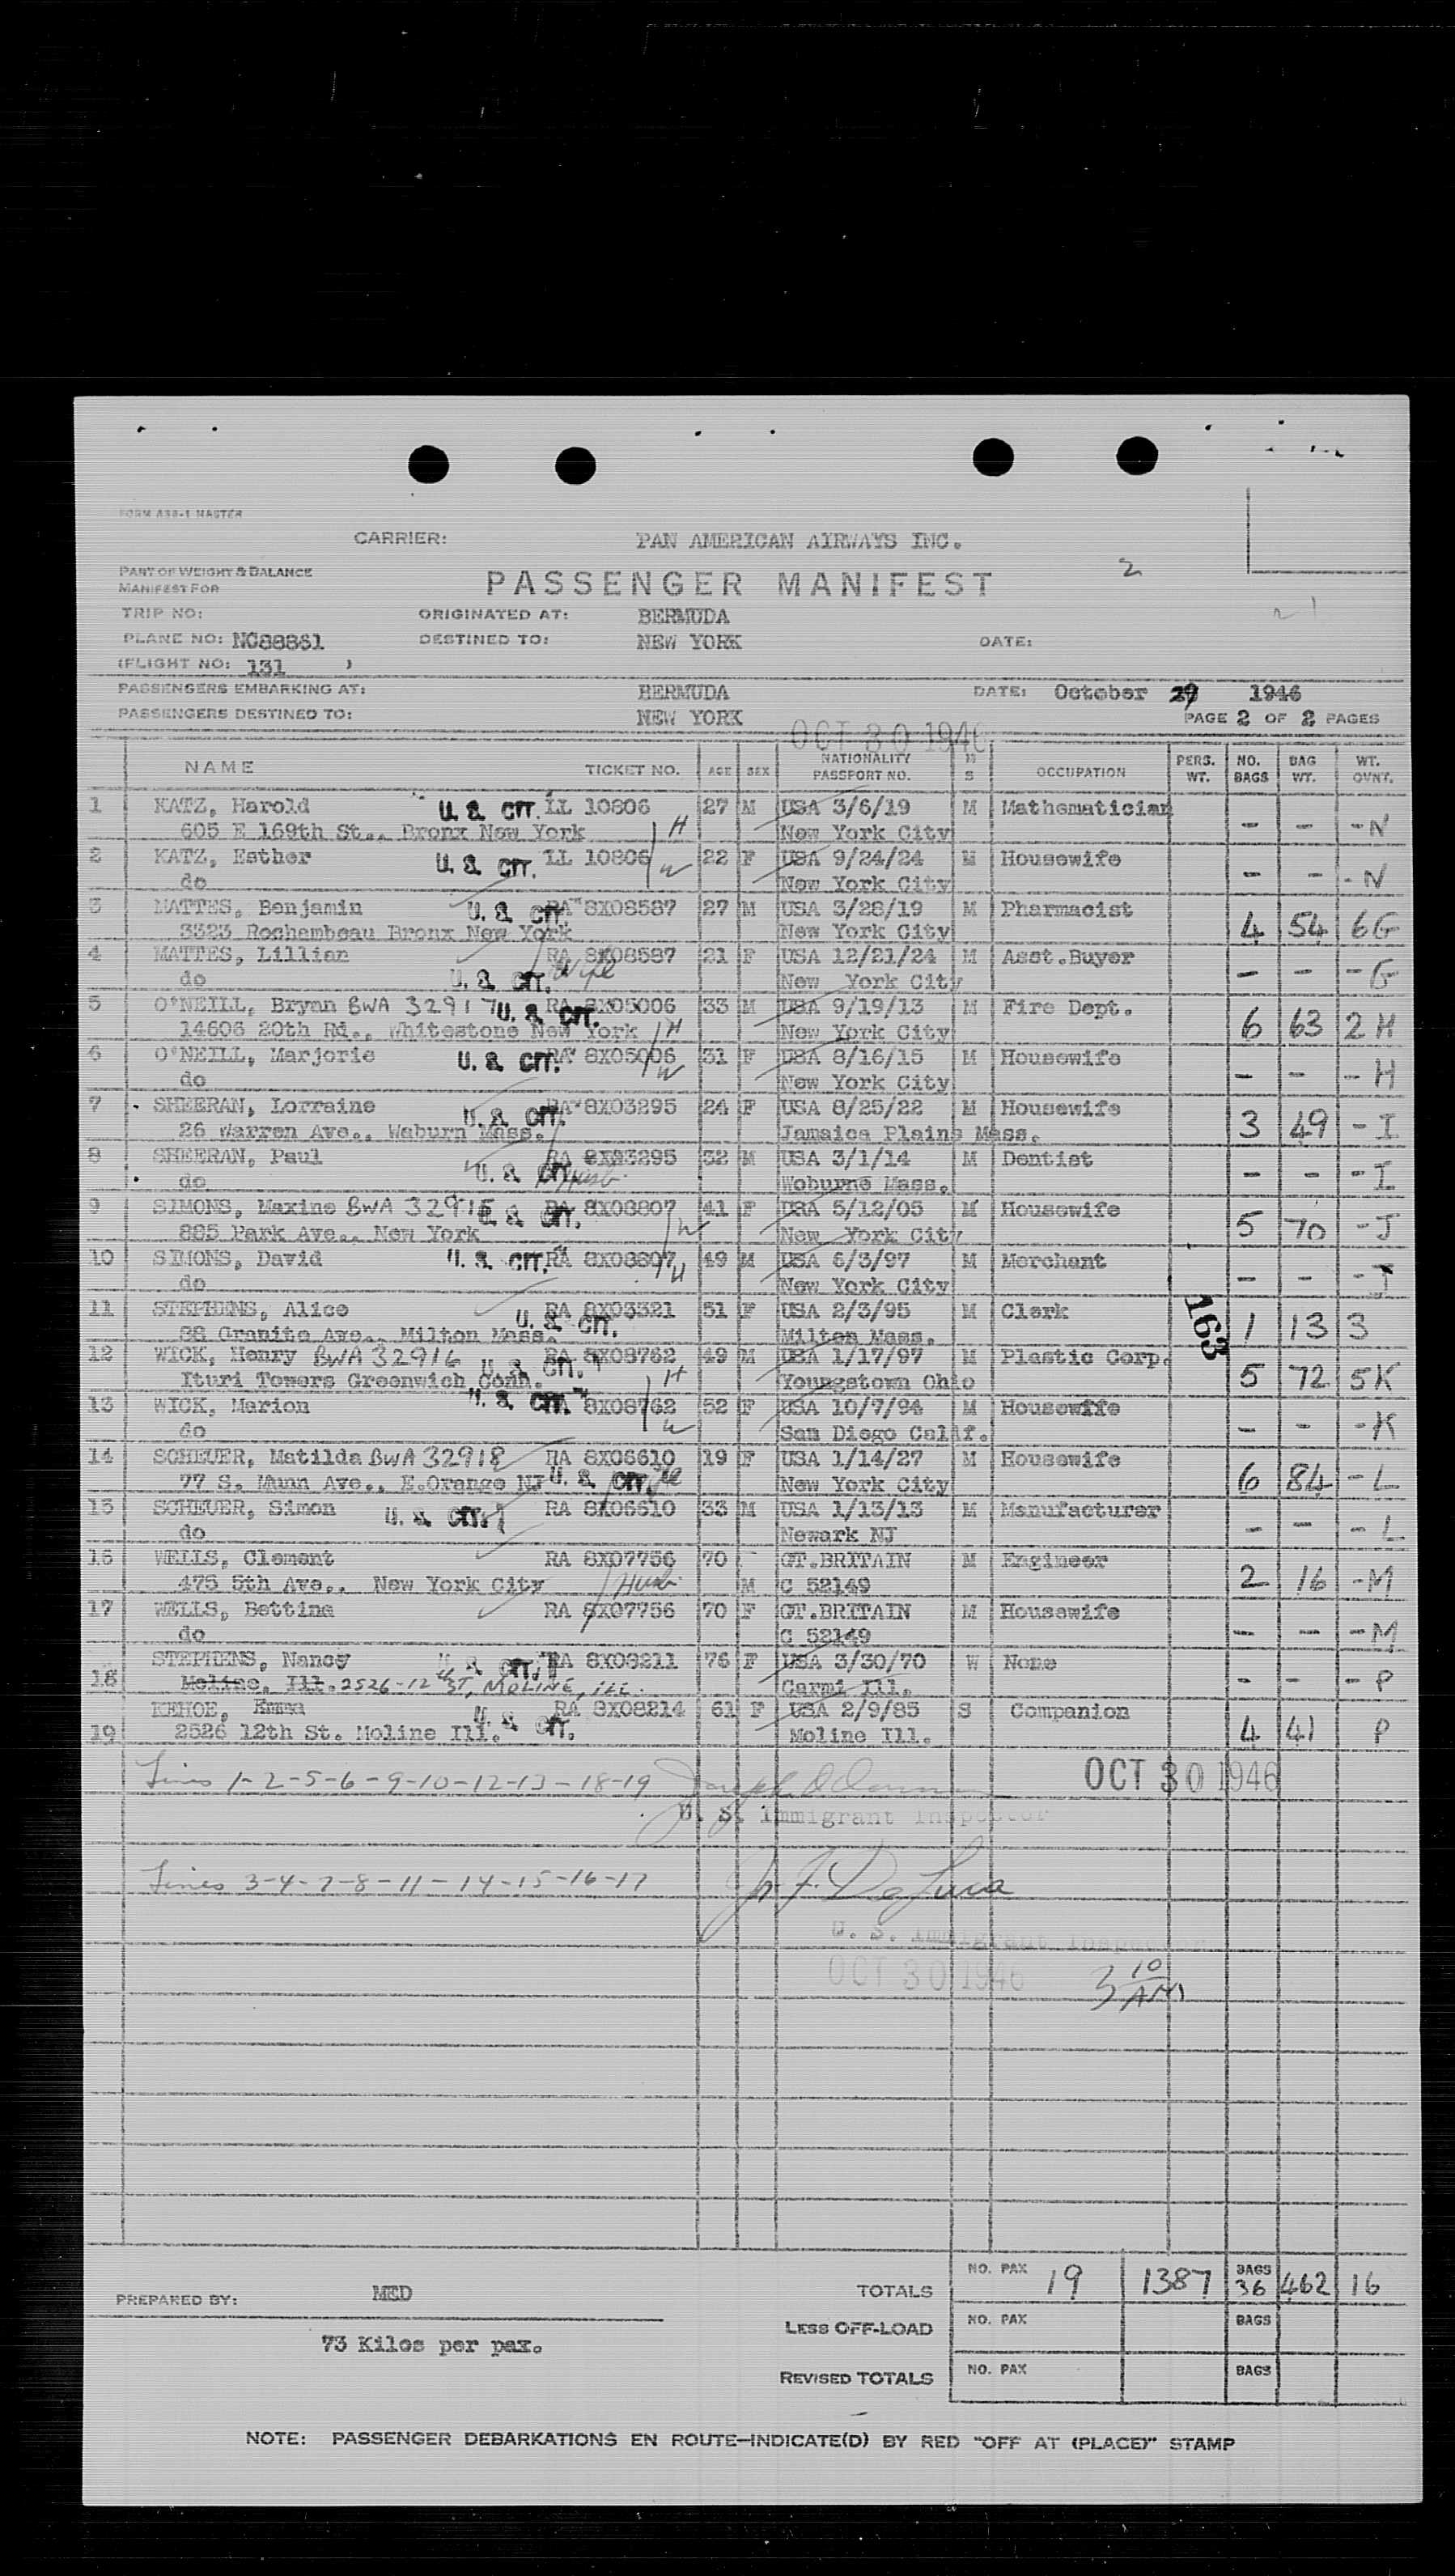 FORM ASB-1 MASTER
CARRIER: PAN AMERICAN AIRWAYS INC.
PART OF WEIGHT & BALANCE
MANIFEST FOR
PASSENGER MANIFEST 2
TRIP NO: ORIGINATED AT: BERMUDA
PLANE NO: NC88861 DESTINED TO: NEW YORK DATE:
(FLIGHT NO: 131 )
PASSENGERS EMBARKING AT: BERMUDA DATE: October 29 1946
PASSENGERS DESTINED TO: NEW YORK PAGE 2 OF 2 PAGES
OCT 30 1946
NAME TICKET NO. AGE SEX NATIONALITY PASSPORT NO. M S OCCUPATION PERS. WT. NO. BAGS BAG WT. WT. OVNT.
1 KATZ, Harold U. S. CIT. LL 10806 27 M USA 3/6/19 M Mathematician
605 E 169th St., Bronx New York H New York City - - - N
2 KATZ, Esther U. S. CIT. LL 10806 22 F USA 9/24/24 M Housewife
do W New York City - - - N
3 MATTES, Benjamin U. S. CIT. RA 8X08587 27 M USA 3/28/19 M Pharmacist
3323 Rochambeau Bronx New York New York City 4 54 6G
4 MATTES, Lillian RA 8X08587 21 F USA 12/21/24 M Asst.Buyer
do U. S. CIT. Wife New York City - - - G
5 O'NEILL, Bryan BWA 32917 U. S. CIT. RA 8X05006 33 M USA 9/19/13 M Fire Dept.
14606 20th Rd., Whitestone New York H New York City 6 63 2 H
6 O'NEILL, Marjorie U. S. CIT. RA 8X05006 31 F USA 8/16/15 M Housewife
do W New York City - - - H
7 SHEERAN, Lorraine U. S. CIT. RA 8X03295 24 F USA 8/25/22 M Housewife
26 Warren Ave., Woburn Mass. Jamaica Plains Mass. 3 49 - I
8 SHEERAN, Paul RA 8X03295 32 M USA 3/1/14 M Dentist
do U. S. CIT. Husb. Woburne Mass. - - - I
9 SIMONS, Maxine BWA 32915 U. S. CIT. RA 8X08807 41 F USA 5/12/05 M Housewife
885 Park Ave., New York W New York City 5 70 - J
10 SIMONS, David U. S. CIT. RA 8X08807 49 M USA 6/3/97 M Merchant
do H New York City - - - J
11 STEPHENS, Alice U. S. CIT. RA 8X03321 51 F USA 2/3/95 M Clerk
88 Granite Ave., Milton Mass. Milton Mass. 163 1 13 3
12 WICK, Henry BWA 32916 U. S. CIT. RA 8X08762 49 M USA 1/17/97 M Plastic Corp.
Ituri Towers Greenwich Conn. H Youngstown Ohio 5 72 5K
13 WICK, Marion U. S. CIT. 8X08762 52 F USA 10/7/94 M Housewife
do W San Diego Calif. - - - K
14 SCHEUER, Matilda BWA 32918 RA 8X06610 19 F USA 1/14/27 M Housewife
77 S. Munn Ave., E.Orange NJ U. S. CIT. New York City 6 84 - L
15 SCHEUER, Simon U. S. CIT. RA 8X06610 33 M USA 1/13/13 M Manufacturer
do Newark NJ - - - L
16 WELLS, Clement RA 8X07756 70 GT.BRITAIN M Engineer
475 5th Ave., New York City Husb. M C 52149 2 16 - M
17 WELLS, Bettina RA 8X07756 70 F GT.BRITAIN M Housewife
do C 52149 - - - M
STEPHENS, Nancy U. S. CIT. RA 8X08211 76 F USA 3/30/70 W None
18 Moline, Ill. 2526-12 ST, MOLINE, ILL. Carmi Ill. - - - P
KEHOE, Emma RA 8X08214 61 F USA 2/9/85 S Companion
19 2526 12th St. Moline Ill. U. S. CIT. Moline Ill. 4 41 P
Lines 1-2-5-6-9-10-12-13-18-19 OCT 30 1946
U. S. Immigrant Inspector
Lines 3-4-7-8-11-14-15-16-17 DeLuca
U. S. Immigrant Inspector
OCT 30 1946 3 10 AM
TOTALS NO. PAX 19 1387 BAGS 36 462 16
PREPARED BY: MED
LESS OFF-LOAD NO. PAX BAGS
73 Kilos per pax.
REVISED TOTALS NO. PAX BAGS
NOTE: PASSENGER DEBARKATIONS EN ROUTE—INDICATE(D) BY RED "OFF AT (PLACE)" STAMP